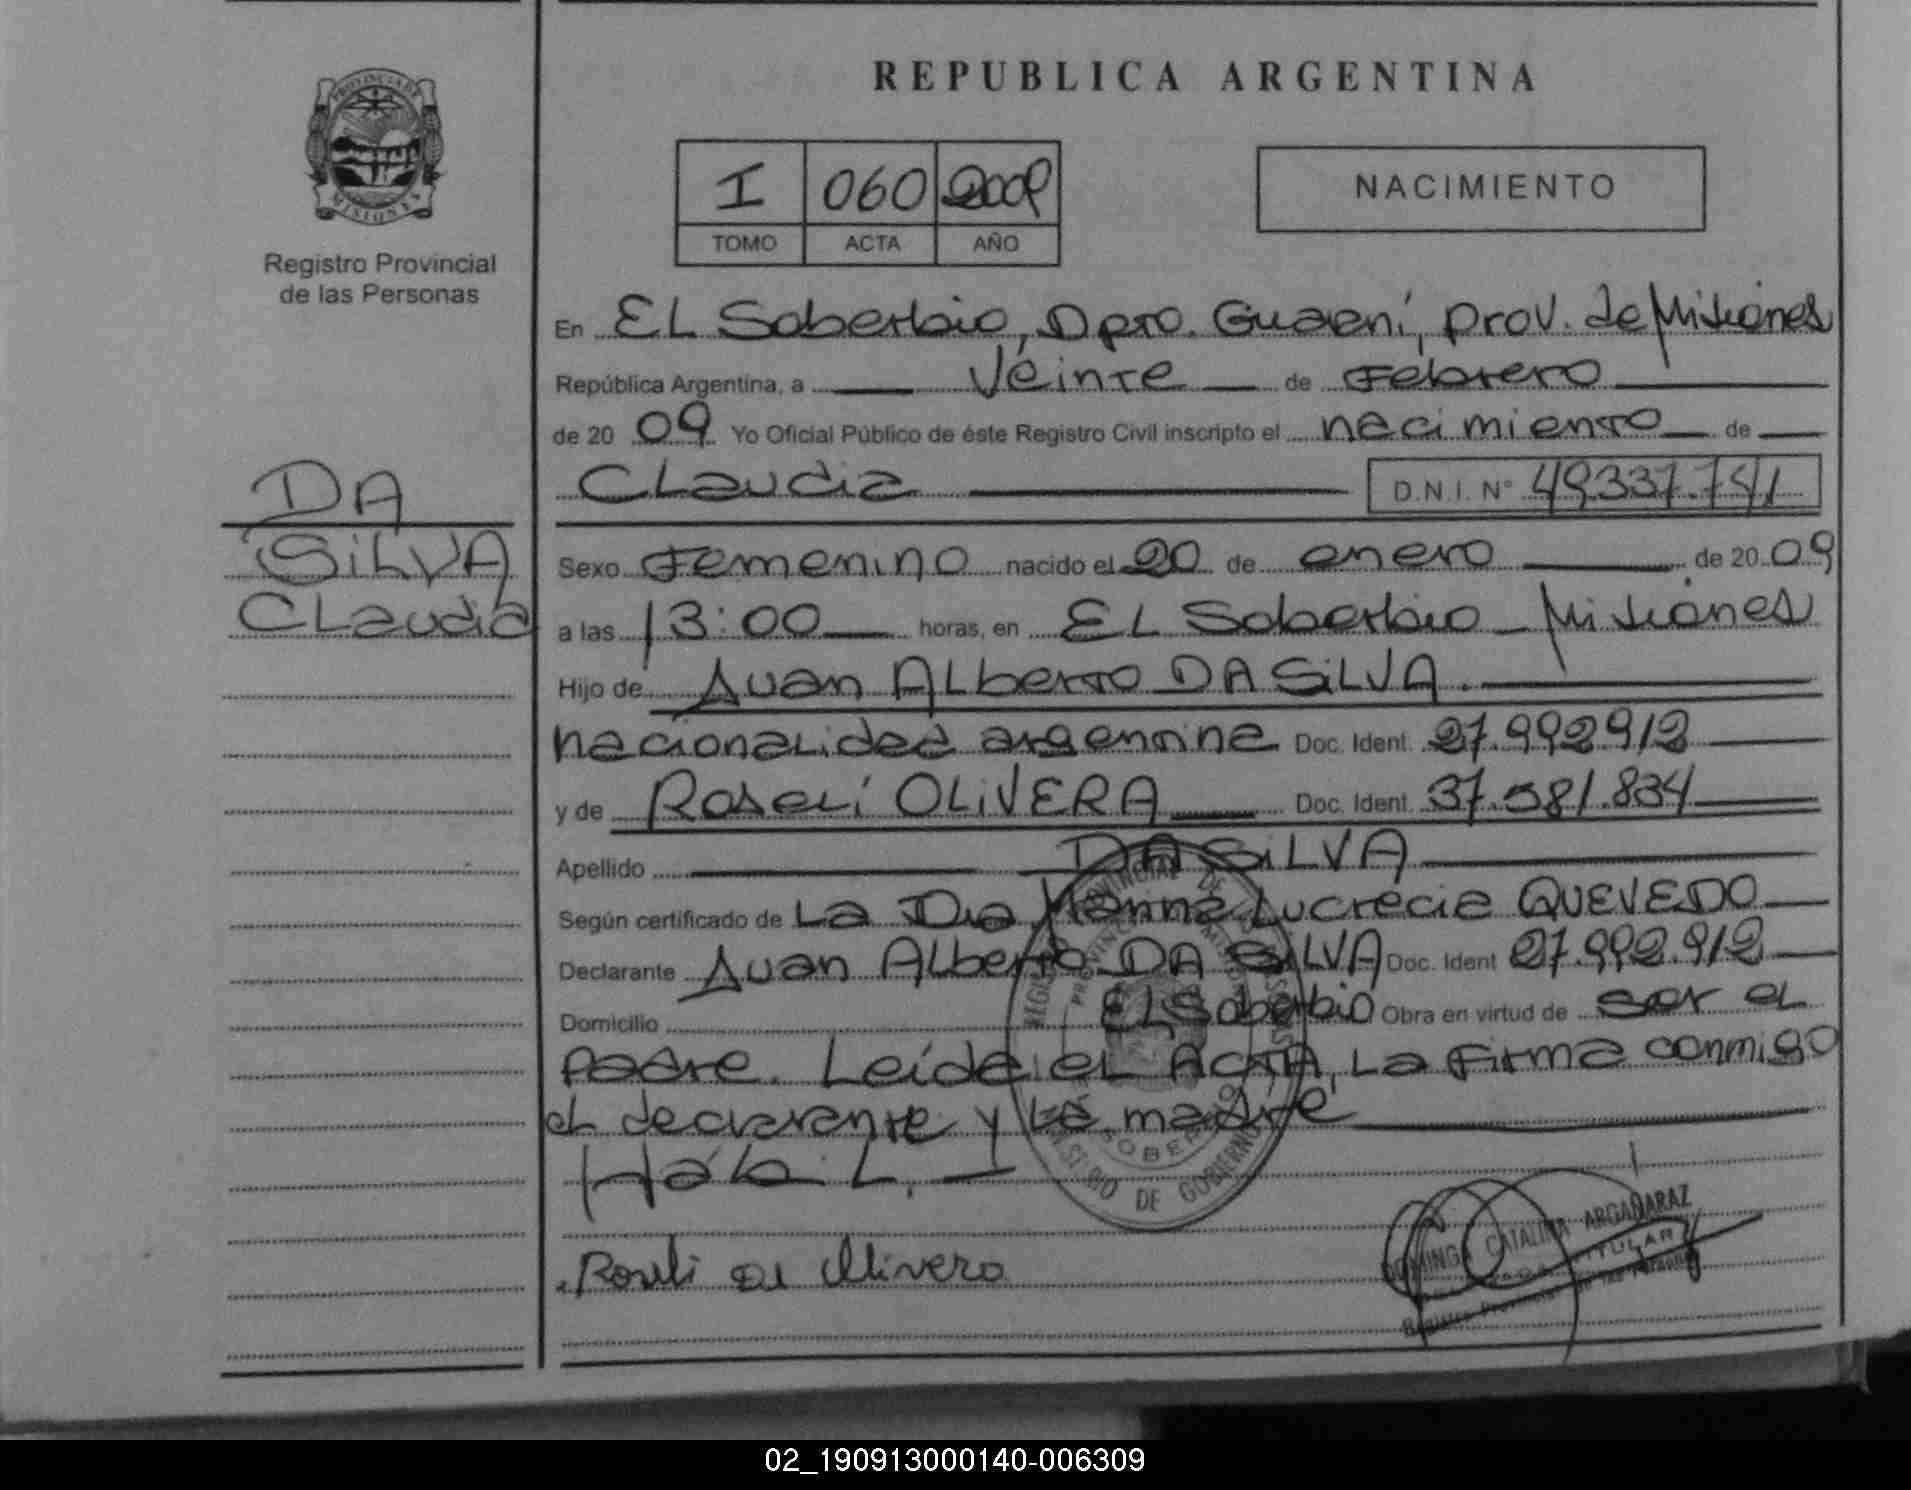 REPUBLICA ARGENTINA
PROVINCIA DE
MISIONES
Registro Provincial
de las Personas
I 060 2009
TOMO ACTA AÑO
NACIMIENTO
En EL Soberbio, Dpto. Guaraní, Prov. de Misiones
República Argentina, a veinte de Febrero
de 20 09 Yo Oficial Público de éste Registro Civil inscripto el nacimiento de
Claudia D.N.I. N° 49337.741
DA
SILVA
Claudia
Sexo Femenino nacido el 20 de enero de 20 09
a las 13:00 horas, en EL Soberbio - Misiones
Hijo de Juan Alberto DA SILVA.
nacionalidad argentina Doc. Ident. 27.992912
y de Roselí OLIVERA Doc. Ident. 37.581.834
Apellido DA SILVA
Según certificado de La Dra Marina Lucrecia QUEVEDO
Declarante Juan Alberto DA SILVA Doc. Ident 27.992.912
Domicilio El Soberbio Obra en virtud de ser el
padre. Leída el ACTA, La Firma conmigo
el declarante y la madre
Roseli de Olivera
DOMINGA CATALINA ARGAÑARAZ
TITULAR
DE GOBIERNO
02_190913000140-006309